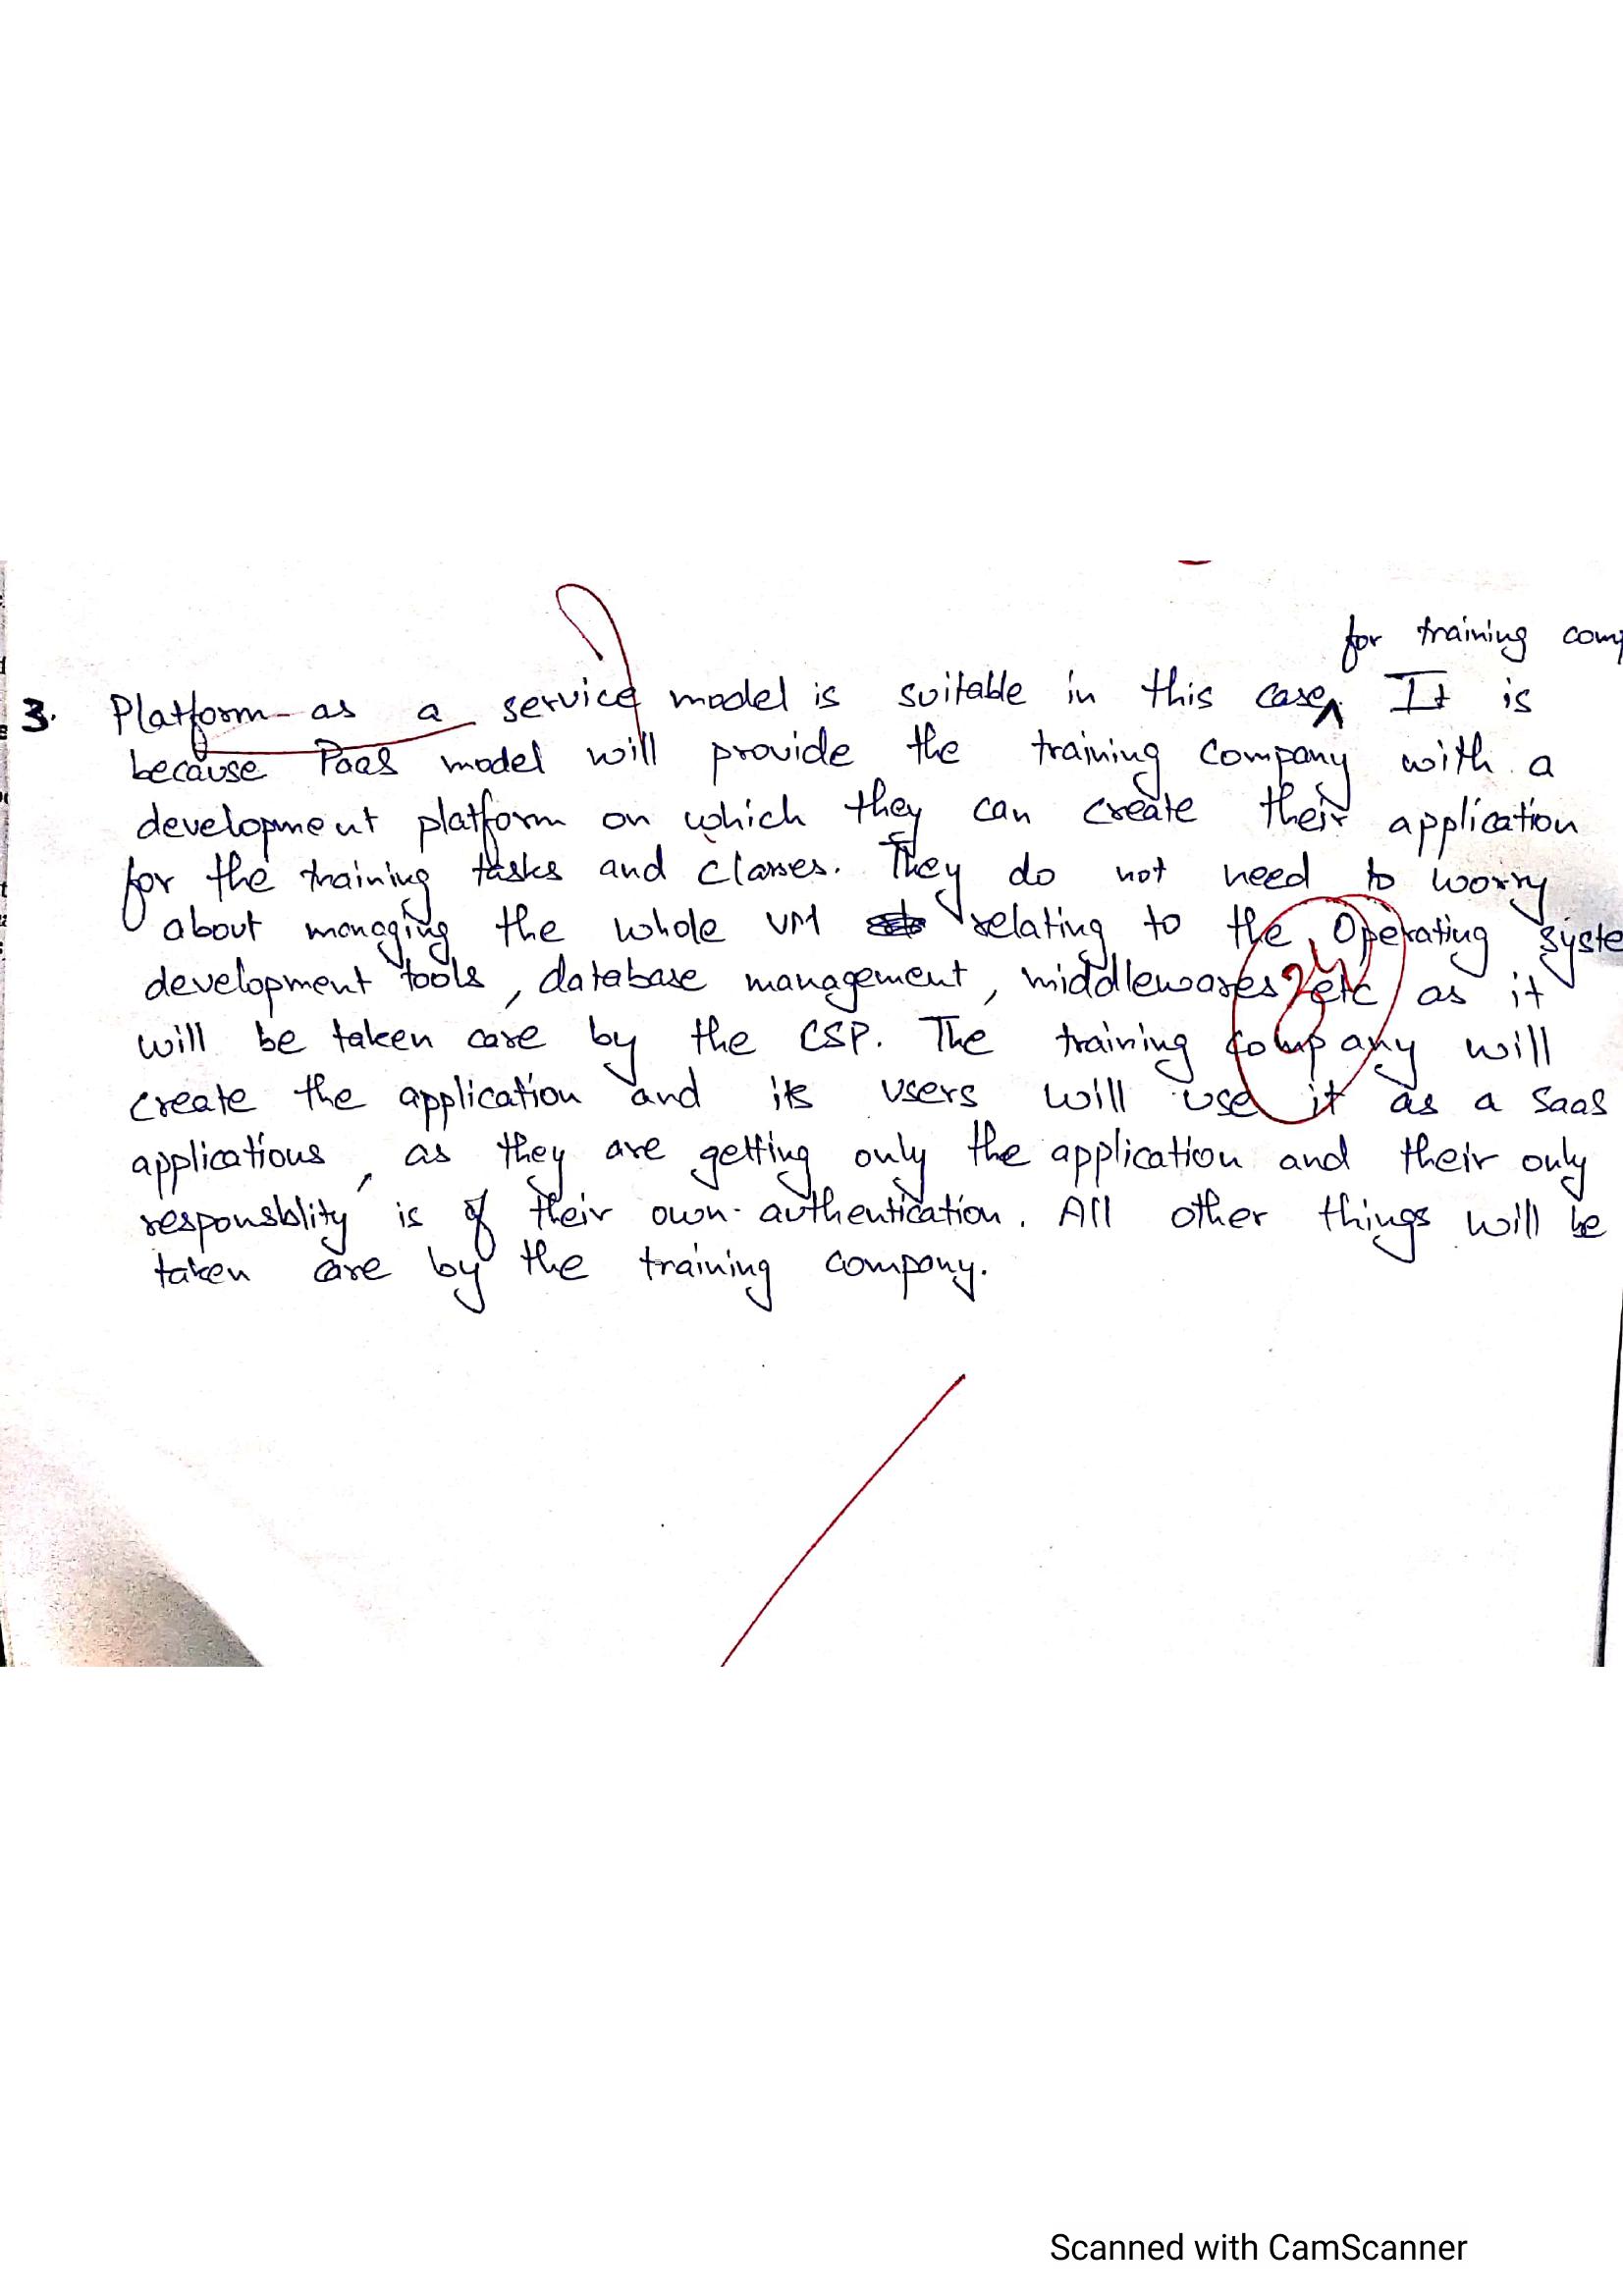 for training comp
3. Platform-as a service model is suitable in this case^. It is
because PaaS model will provide the training company with a
development platform on which they can create their application
for the training tasks and classes. They do not need to worry
about managing the whole VM relating to the Operating syste
development tools, database management, middlewares etc as it
will be taken care by the CSP. The training company will
create the application and its users will use it as a SaaS
applications, as they are getting only the application and their only
responsblity is of their own authentication. All other things will be
taken care by the training company.
Scanned with CamScanner